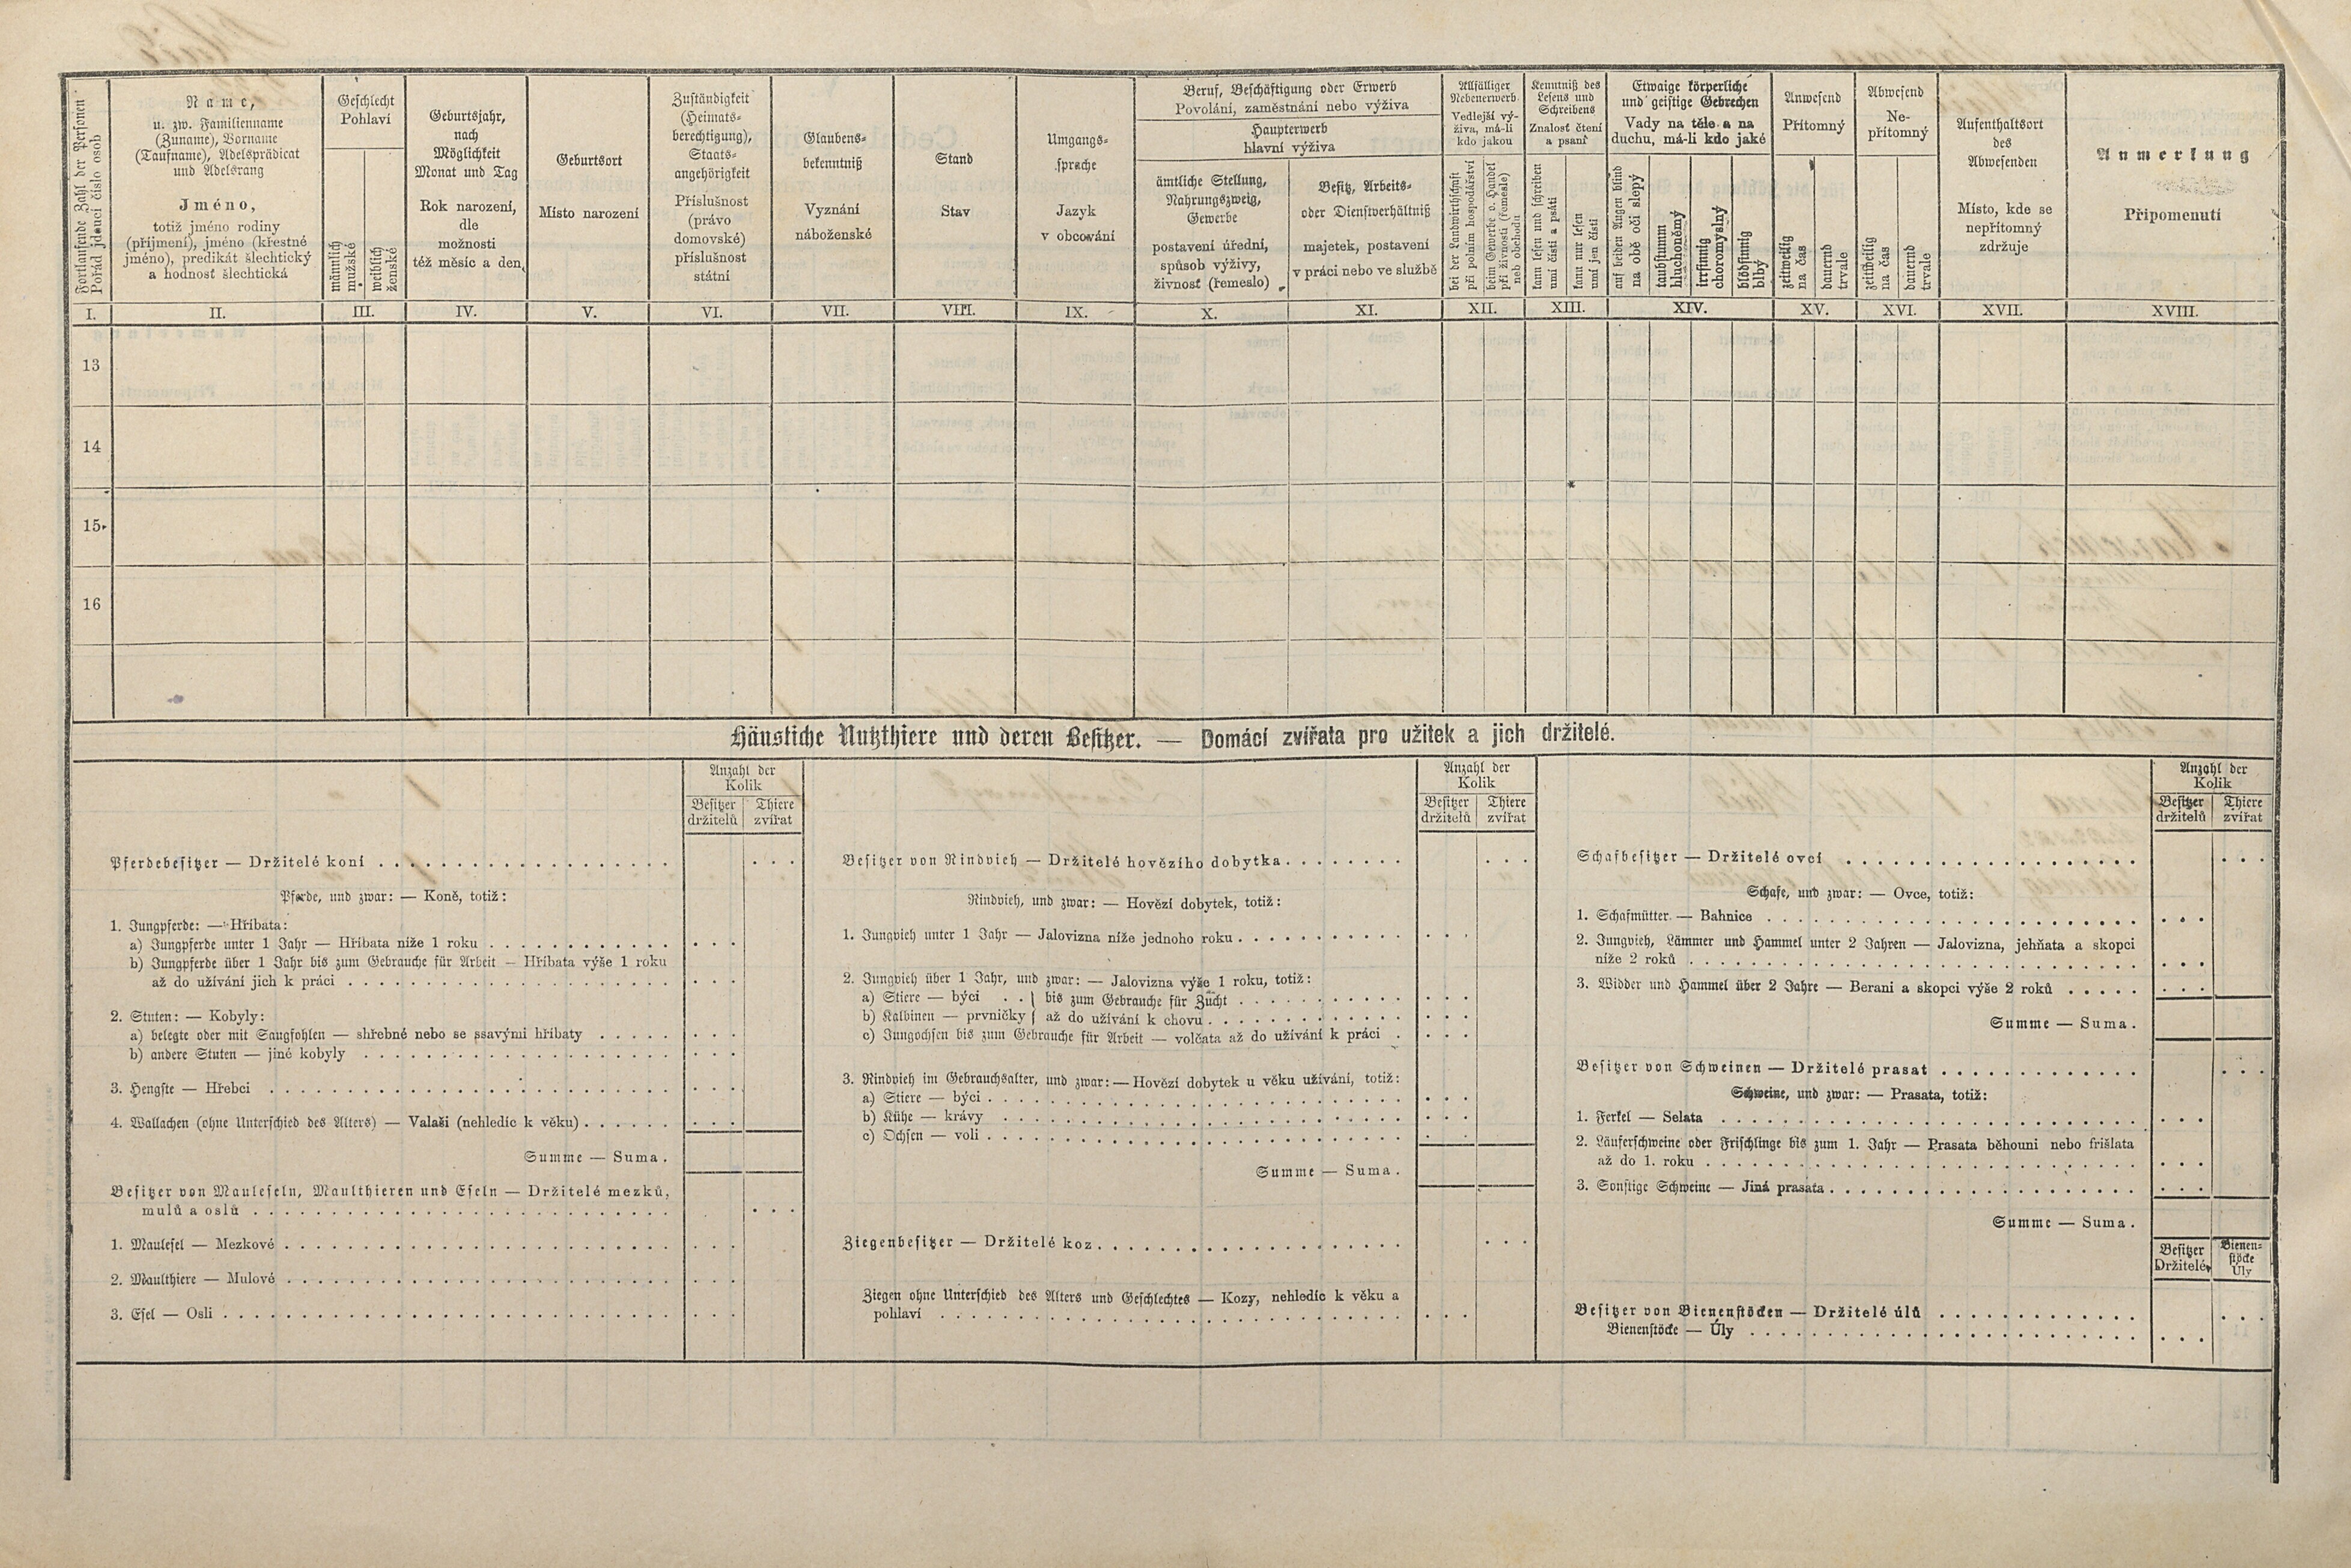 Fortlaufende Zahl der Personen
Pořad jdoucí číslo osob
Name,
u. zw. Familienname
(Zuname), Vorname
(Taufname), Adelsprädicat
und Adelsrang
Jméno,
totiž jméno rodiny
(příjmení), jméno (křestné
jméno), predikát šlechtický
a hodnosť šlechtická
Geschlecht
Pohlaví
männlich
mužské
weiblich
ženské
Geburtsjahr,
nach
Möglichkeit
Monat und Tag
Rok narození,
dle
možnosti
též měsíc a den
Geburtsort
Místo narození
Zuständigkeit
(Heimats-
berechtigung),
Staats-
angehörigkeit
Příslušnost
(právo
domovské)
příslušnost
státní
Glaubens-
bekenntniß
Vyznání
náboženské
Stand
Stav
Umgangs-
sprache
Jazyk
v obcování
Beruf, Beschäftigung oder Erwerb
Povolání, zaměstnání nebo výživa
Haupterwerb
hlavní výživa
ämtliche Stellung,
Nahrungszweig,
Gewerbe
postavení úřední,
spůsob výživy,
živnosť (řemeslo)
Besitz, Arbeits-
oder Dienstverhältniß
majetek, postavení
v práci nebo ve službě
Allfälliger
Nebenerwerb
Vedlejší vý-
živa, má-li
kdo jakou
bei der Landwirthschaft
při polním hospodářství
beim Gewerbe o. Handel
při živnosti (řemesle)
neb obchodu
Kenntniß des
Lesens und
Schreibens
Znalosť čtení
a psaní
kann lesen und schreiben
umí čísti a psáti
kann nur lesen
umí jen čísti
Etwaige körperliche
und geistige Gebrechen
Vady na těle a na
duchu, má-li kdo jaké
auf beiden Augen blind
na obě oči slepý
taubstumm
hluchoněmý
irrsinnig
choromyslný
blödsinnig
blbý
Anwesend
Přítomný
zeitweilig
na čas
dauernd
trvale
Abwesend
Ne-
přítomný
zeitweilig
na čas
dauernd
trvale
Aufenthaltsort
des
Abwesenden
Místo, kde se
nepřítomný
zdržuje
Anmerkung
Připomenutí
I. II. III. IV. V. VI. VII. VIII. IX. X. XI. XII. XIII. XIV. XV. XVI. XVII. XVIII.
13
14
15
16
Häusliche Nutzthiere und deren Besitzer. — Domácí zvířata pro užitek a jich držitelé.
Anzahl der
Kolik
Besitzer
držitelů
Thiere
zvířat
Pferdebesitzer — Držitelé koní
Pferde, und zwar: — Koně, totiž:
1. Jungpferde: — Hříbata:
a) Jungpferde unter 1 Jahr — Hříbata níže 1 roku
b) Jungpferde über 1 Jahr bis zum Gebrauche für Arbeit — Hříbata výše 1 roku
až do užívání jich k práci
2. Stuten: — Kobyly:
a) belegte oder mit Saugfohlen — shřebné nebo se ssavými hříbaty
b) andere Stuten — jiné kobyly
3. Hengste — Hřebci
4. Wallachen (ohne Unterschied des Alters) — Valaši (nehledíc k věku)
Summe — Suma.
Besitzer von Mauleseln, Maulthieren und Eseln — Držitelé mezků,
mulů a oslů
1. Maulesel — Mezkové
2. Maulthiere — Mulové
3. Esel — Osli
Anzahl der
Kolik
Besitzer
držitelů
Thiere
zvířat
Besitzer von Rindvieh — Držitelé hovězího dobytka
Rindvieh, und zwar: — Hovězí dobytek, totiž:
1. Jungvieh unter 1 Jahr — Jalovizna níže jednoho roku
2. Jungvieh über 1 Jahr, und zwar: — Jalovizna výše 1 roku, totiž:
a) Stiere — býci . . } bis zum Gebrauche für Zucht
b) Kalbinen — prvničky } až do užívání k chovu
c) Jungochsen bis zum Gebrauche für Arbeit — volčata až do užívání k práci
3. Rindvieh im Gebrauchsalter, und zwar: — Hovězí dobytek u věku užívání, totiž:
a) Stiere — býci
b) Kühe — krávy
c) Ochsen — voli
Summe — Suma.
Ziegenbesitzer — Držitelé koz
Ziegen ohne Unterschied des Alters und Geschlechtes — Kozy, nehledíc k věku a
pohlaví
Anzahl der
Kolik
Besitzer
držitelů
Thiere
zvířat
Schafbesitzer — Držitelé ovcí
Schafe, und zwar: — Ovce, totiž:
1. Schafmütter — Bahnice
2. Jungvieh, Lämmer und Hammel unter 2 Jahren — Jalovizna, jehňata a skopci
níže 2 roků
3. Widder und Hammel über 2 Jahre — Berani a skopci výše 2 roků
Summe — Suma.
Besitzer von Schweinen — Držitelé prasat
Schweine, und zwar: — Prasata, totiž:
1. Ferkel — Selata
2. Läuferschweine oder Frischlinge bis zum 1. Jahr — Prasata běhouni nebo frišlata
až do 1. roku
3. Sonstige Schweine — Jiná prasata
Summe — Suma.
Besitzer
Držitelé
Bienen-
stöcke
Úly
Besitzer von Bienenstöcken — Držitelé úlů
Bienenstöcke — Úly